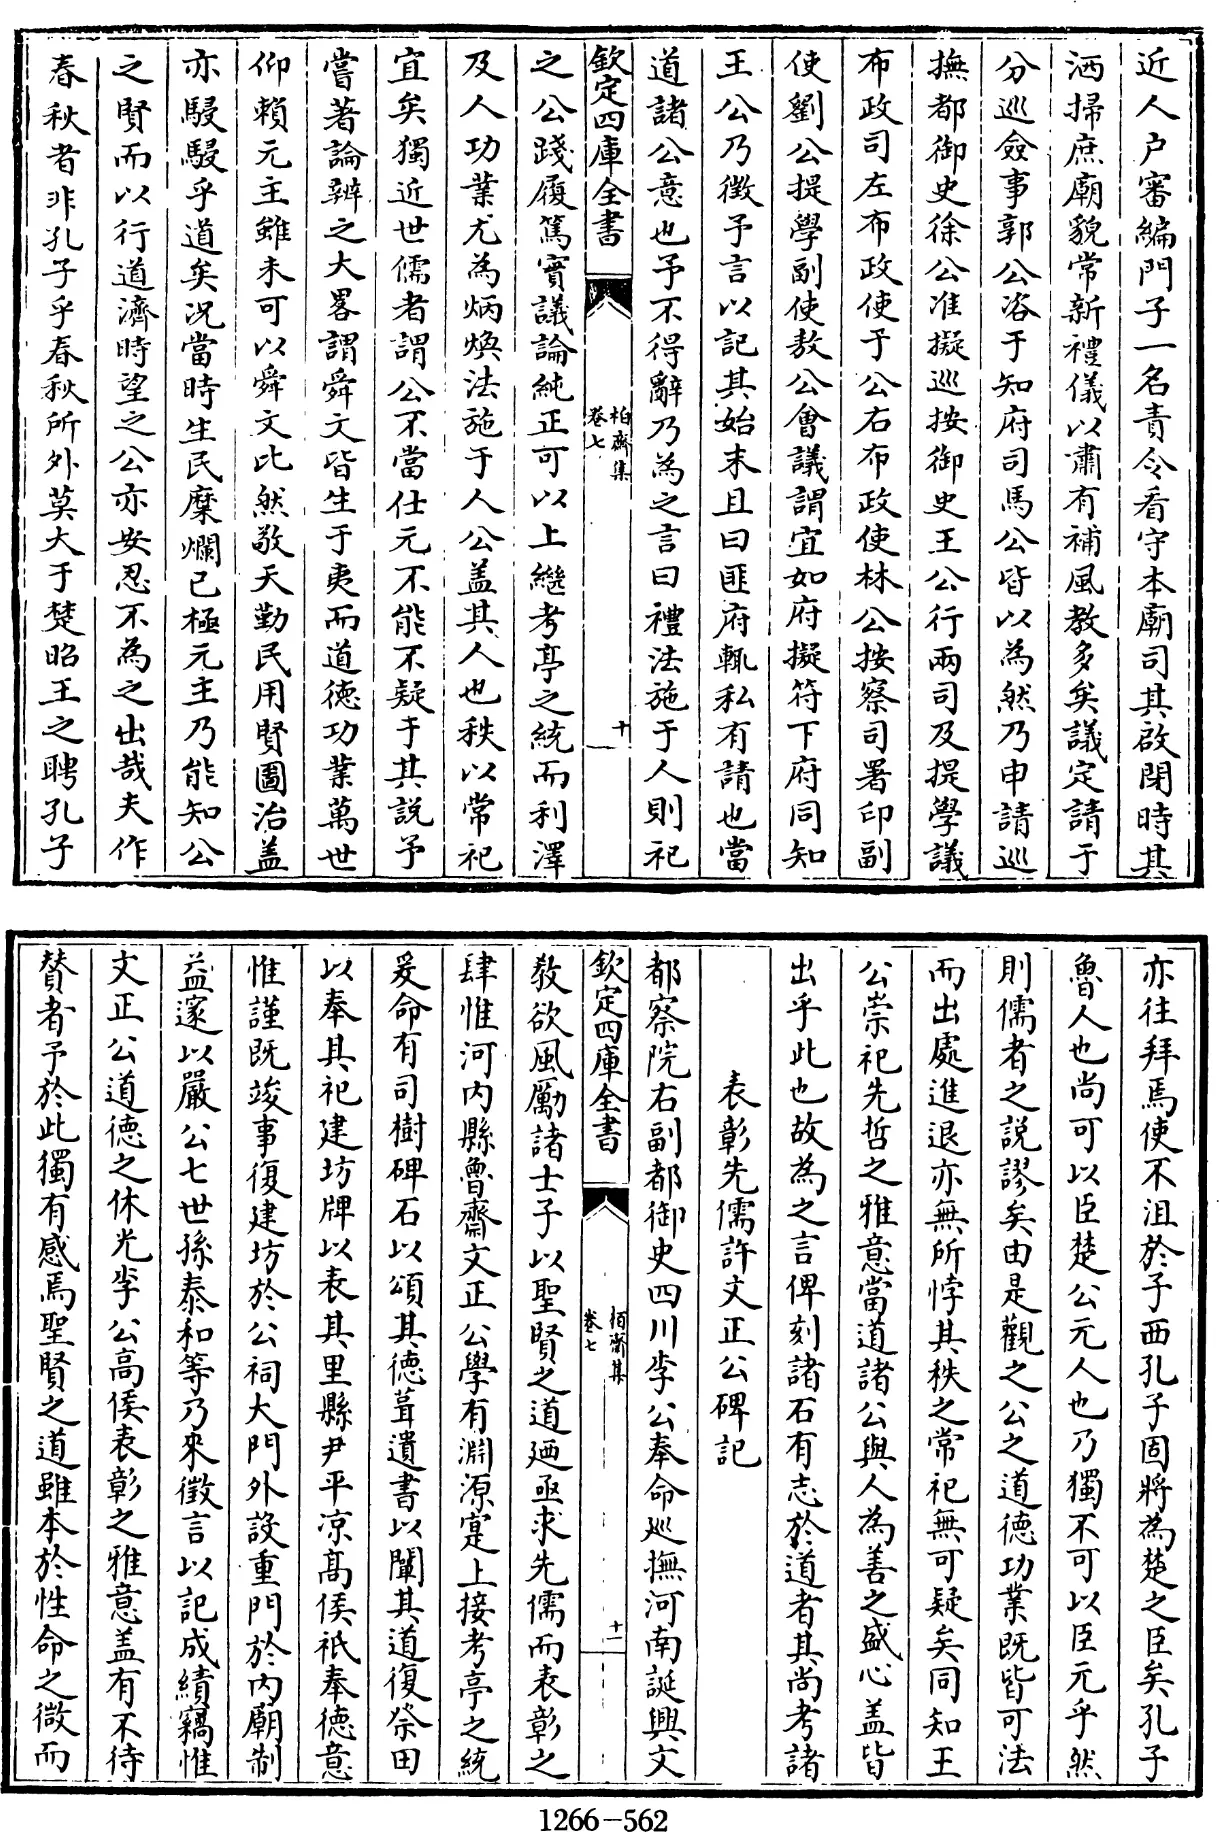 近人户審編門子一名責令看守本廟司其啟閉時其
洒掃庶廟貌常新禮儀以肅有補風教多矣議定請于
分巡僉事郭公咨于知府司馬公皆以為然乃申請巡
撫都御史徐公准擬巡按御史王公行兩司及提學議
布政司左布政使于公右布政使林公按察司署印副
使劉公提學副使敖公會議謂宜如府擬符下府同知
王公乃徵予言以記其始末且曰匪府輒私有請也當
道諸公意也予不得辭乃為之言曰禮法施于人則祀
欽定四庫全書
柏齋集
卷七
十
之公踐履篤實議論純正可以上繼考亭之統而利澤
及人功業尤為炳煥法施于人公盖其人也秩以常祀
宜矣獨近世儒者謂公不當仕元不能不疑于其說予
嘗著論辨之大畧謂舜文皆生于夷而道德功業萬世
仰賴元主雖未可以舜文比然敬天勤民用賢圖治盖
亦駸駸乎道矣况當時生民糜爛已極元主乃能知公
之賢而以行道濟時望之公亦安忍不為之出哉夫作
春秋者非孔子乎春秋所外莫大于楚昭王之聘孔子
亦往拜焉使不沮於子西孔子固將為楚之臣矣孔子
魯人也尚可以臣楚公元人也乃獨不可以臣元乎然
則儒者之説謬矣由是觀之公之道德功業既皆可法
而出處進退亦無所悖其秩之常祀無可疑矣同知王
公崇祀先哲之雅意當道諸公與人為善之盛心盖皆
出乎此也故為之言俾刻諸石有志於道者其尚考諸
表彰先儒許文正公碑記
都察院右副都御史四川李公奉命巡撫河南誕興文
欽定四庫全書
栢齋集
卷七
十一
教欲風勵諸士子以聖賢之道廼亟求先儒而表彰之
肆惟河内縣魯齋文正公學有淵源寔上接考亭之統
爰命有司樹碑石以頌其德葺遺書以闡其道復祭田
以奉其祀建坊牌以表其里縣尹平凉高侯祇奉德意
惟謹既竣事復建坊於公祠大門外設重門於内廟制
益邃以嚴公七世孫泰和等乃來徵言以記成績竊惟
文正公道德之休光李公高侯表彰之雅意盖有不待
賛者予於此獨有感焉聖賢之道雖本於性命之微而
1266-562